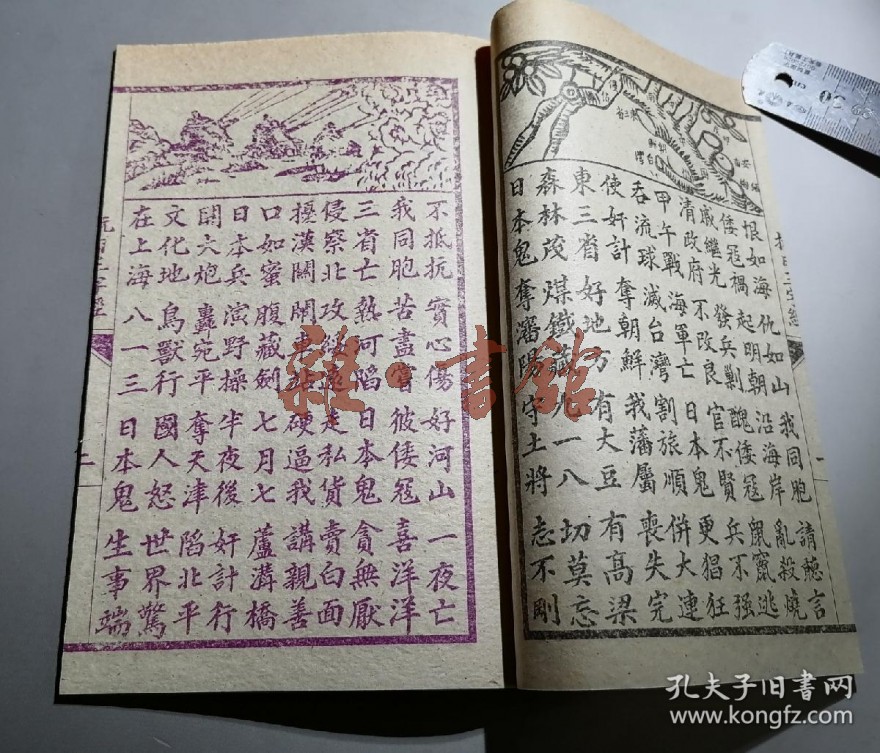 抗日三字經
一
恨如海 仇如山 我同胞 請聽言
倭寇禍 起明朝 沿海岸 亂殺燒
戚繼光 發兵剿 醜倭寇 鼠竄逃
清政府 不改良 官不賢 兵不强
甲午戰 海軍亡 日本鬼 更猖狂
吞流球 滅台灣 割旅順 併大連
使奸計 奪朝鮮 我藩屬 喪失完
東三省 好地方 有大豆 有高梁
森林茂 煤鐵藏 九一八 切莫忘
日本鬼 奪瀋陽 守土將 志不剛
不抵抗 實心傷 好河山 一夜亡
我同胞 苦盡嘗 彼倭寇 喜洋洋
三省亡 熱河陷 日本鬼 貪無厭
侵察北 攻綏遠 走私貨 賣白面
擾漢關 鬧車站 硬逼我 講親善
口如蜜 腹藏劍 七月七 蘆溝橋
日本兵 演野操 半夜後 奸計行
開大炮 轟宛平 奪天津 陷北平
文化地 鳥獸行 國人怒 世界驚
在上海 八一三 日本鬼 生事端
抗日三字經
二
雜·書館
孔夫子旧书网
www.kongfz.com